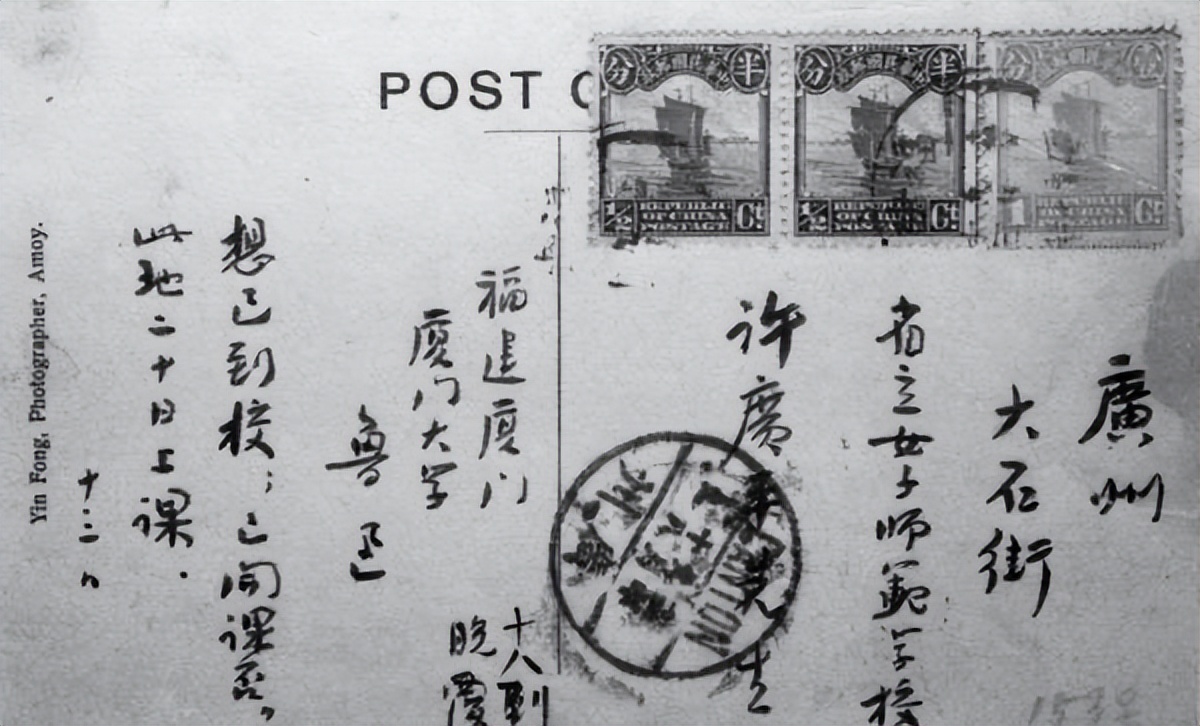 POST C
分 半
1/2 REPUBLIC OF CHINA POSTAGE Ct
分 半
1/2 REPUBLIC OF CHINA POSTAGE Ct
分
1 REPUBLIC OF CHINA POSTAGE Ct
廣州
大石街
省立女子师範学校
许廣平先生
CANTON
福建廈门
廈门大学
魯迅
十八到
晚覆
想已到校；已開课否？
此地二十日上课.
十三日
Yin Fong, Photographer, Amoy.